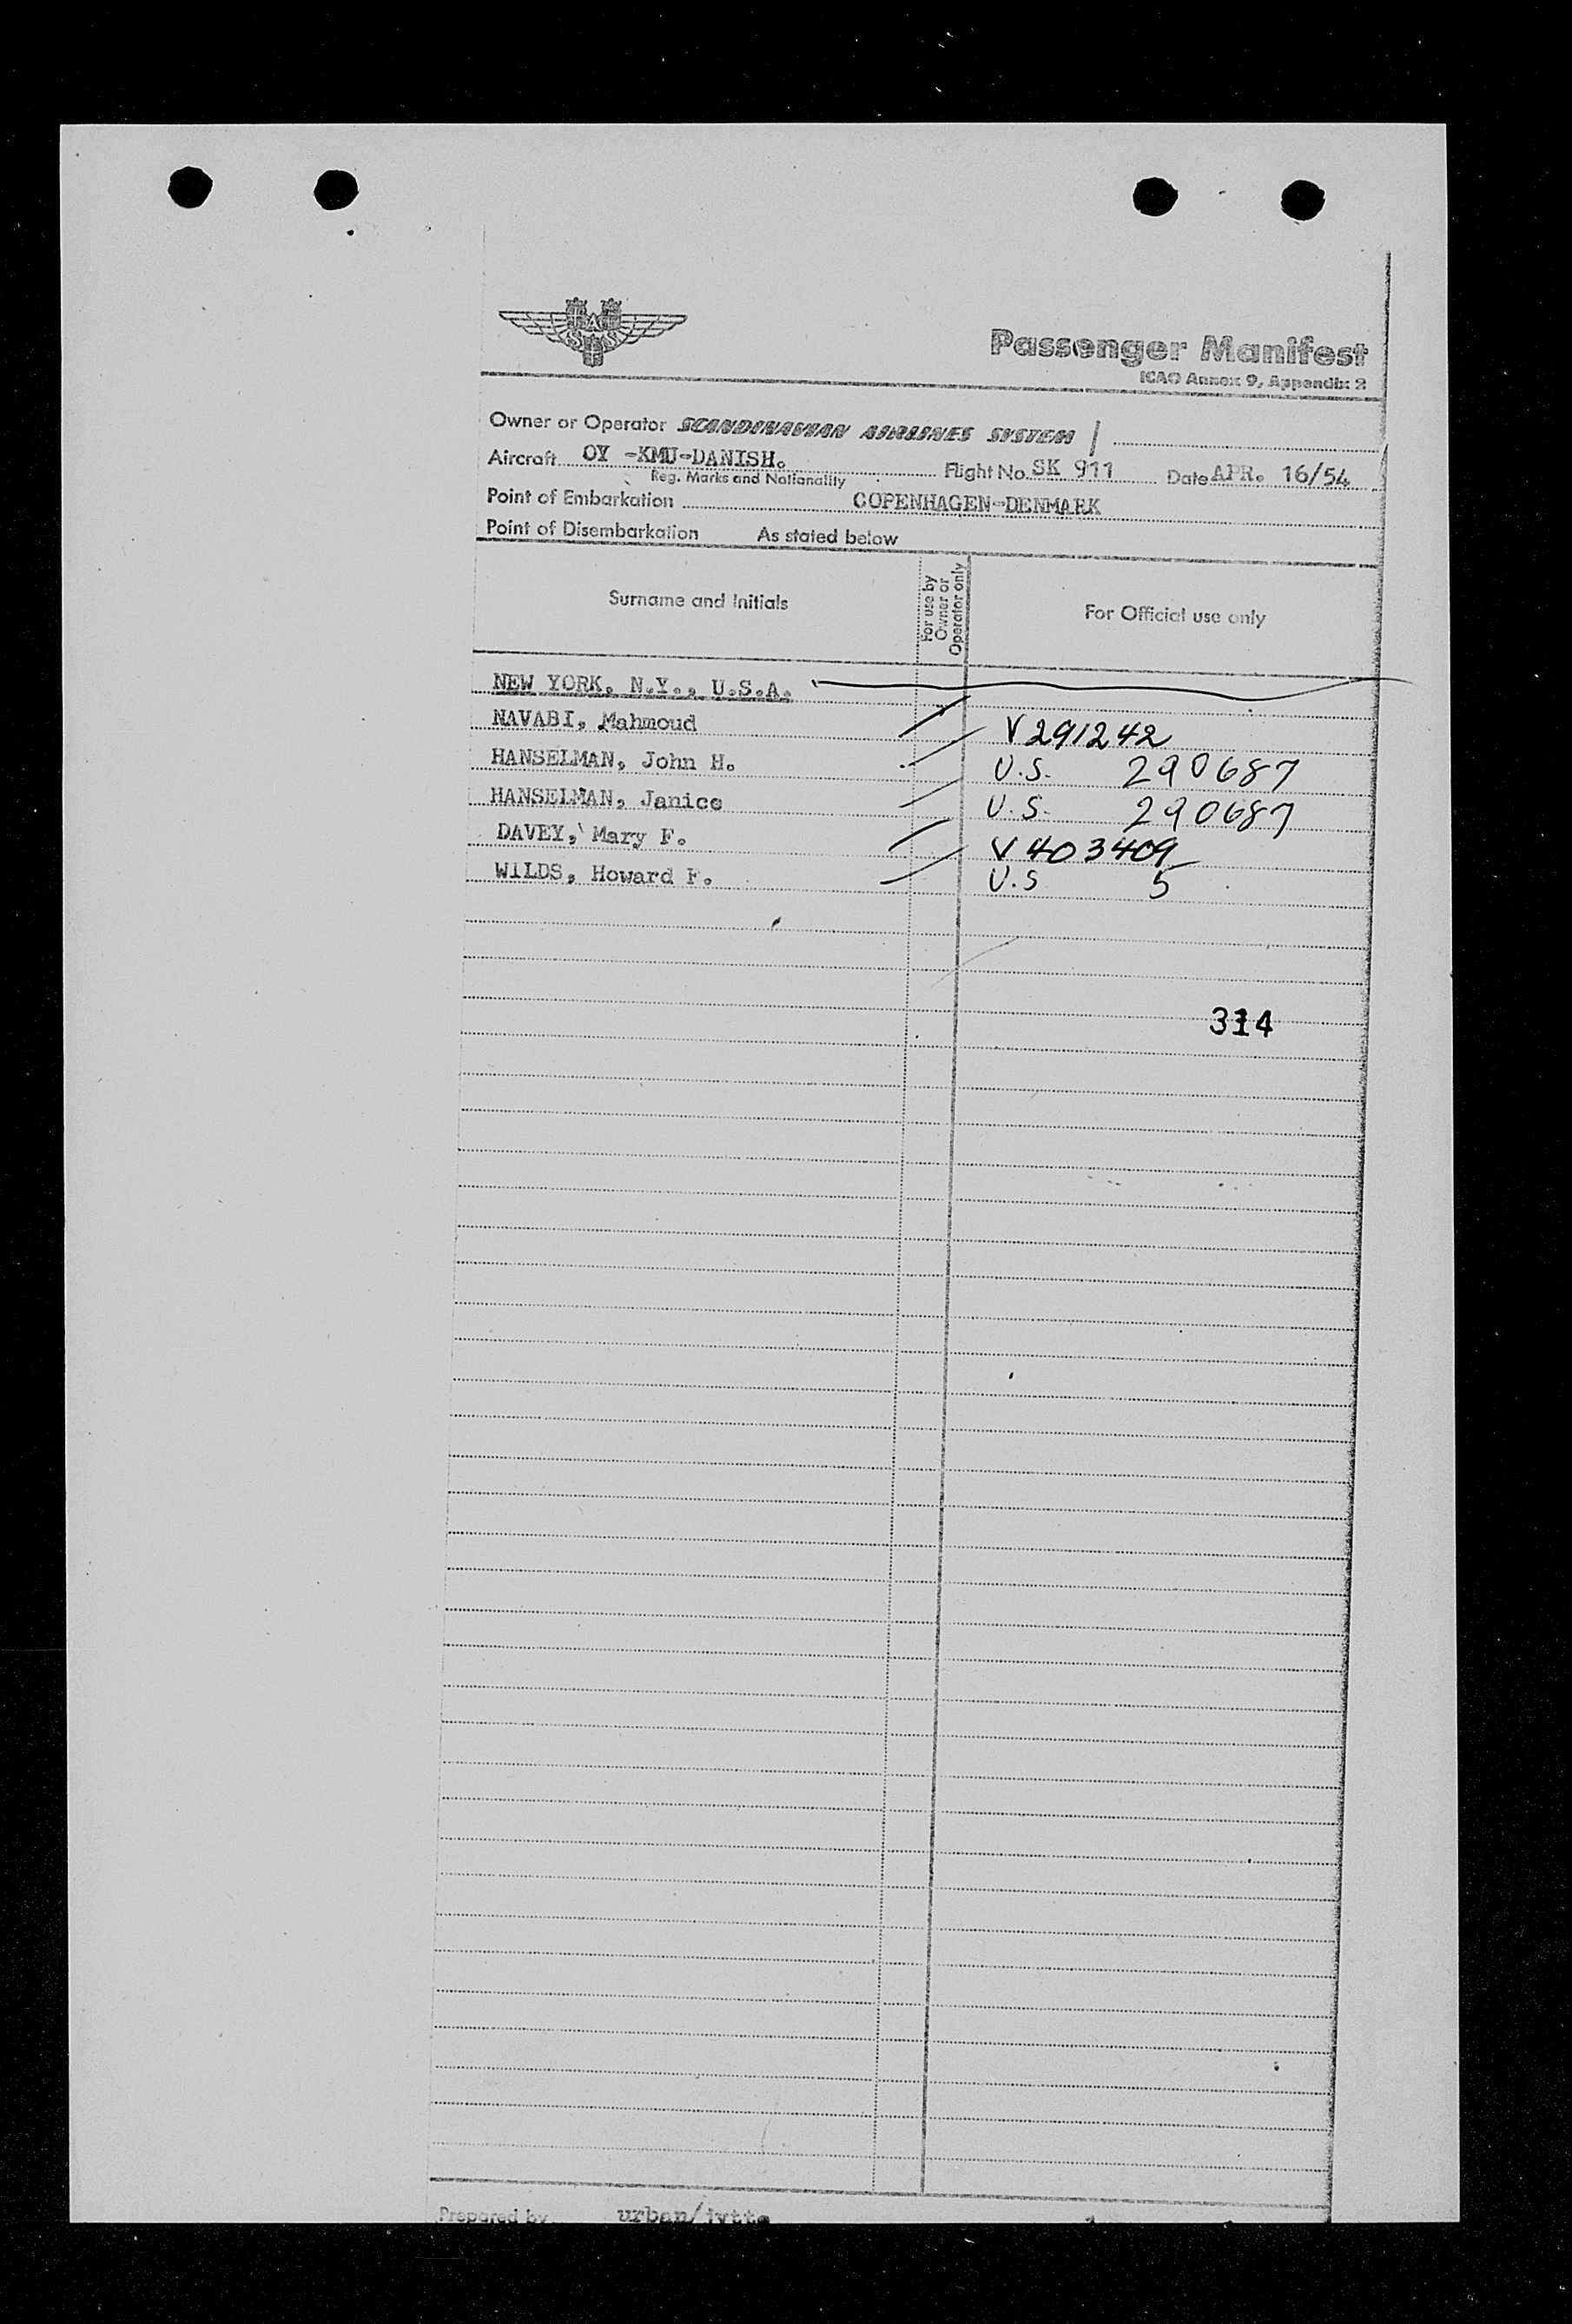 SAS
Passenger Manifest
ICAO Annex 9, Appendix 2
Owner or Operator SCANDINAVIAN AIRLINES SYSTEM
Aircraft OY -KMU-DANISH. Flight No. SK 911 Date APR. 16/54
Reg. Marks and Nationality
Point of Embarkation COPENHAGEN-DENMARK
Point of Disembarkation As stated below
Surname and Initials For use by Owner or Operator only For Official use only
NEW YORK, N.Y., U.S.A.
NAVABI, Mahmoud V291242
HANSELMAN, John H. U.S. 290687
HANSELMAN, Janice U.S. 290687
DAVEY, Mary F. V 403409
WILDS, Howard F. U.S 5
314
Prepared by urban/jytte